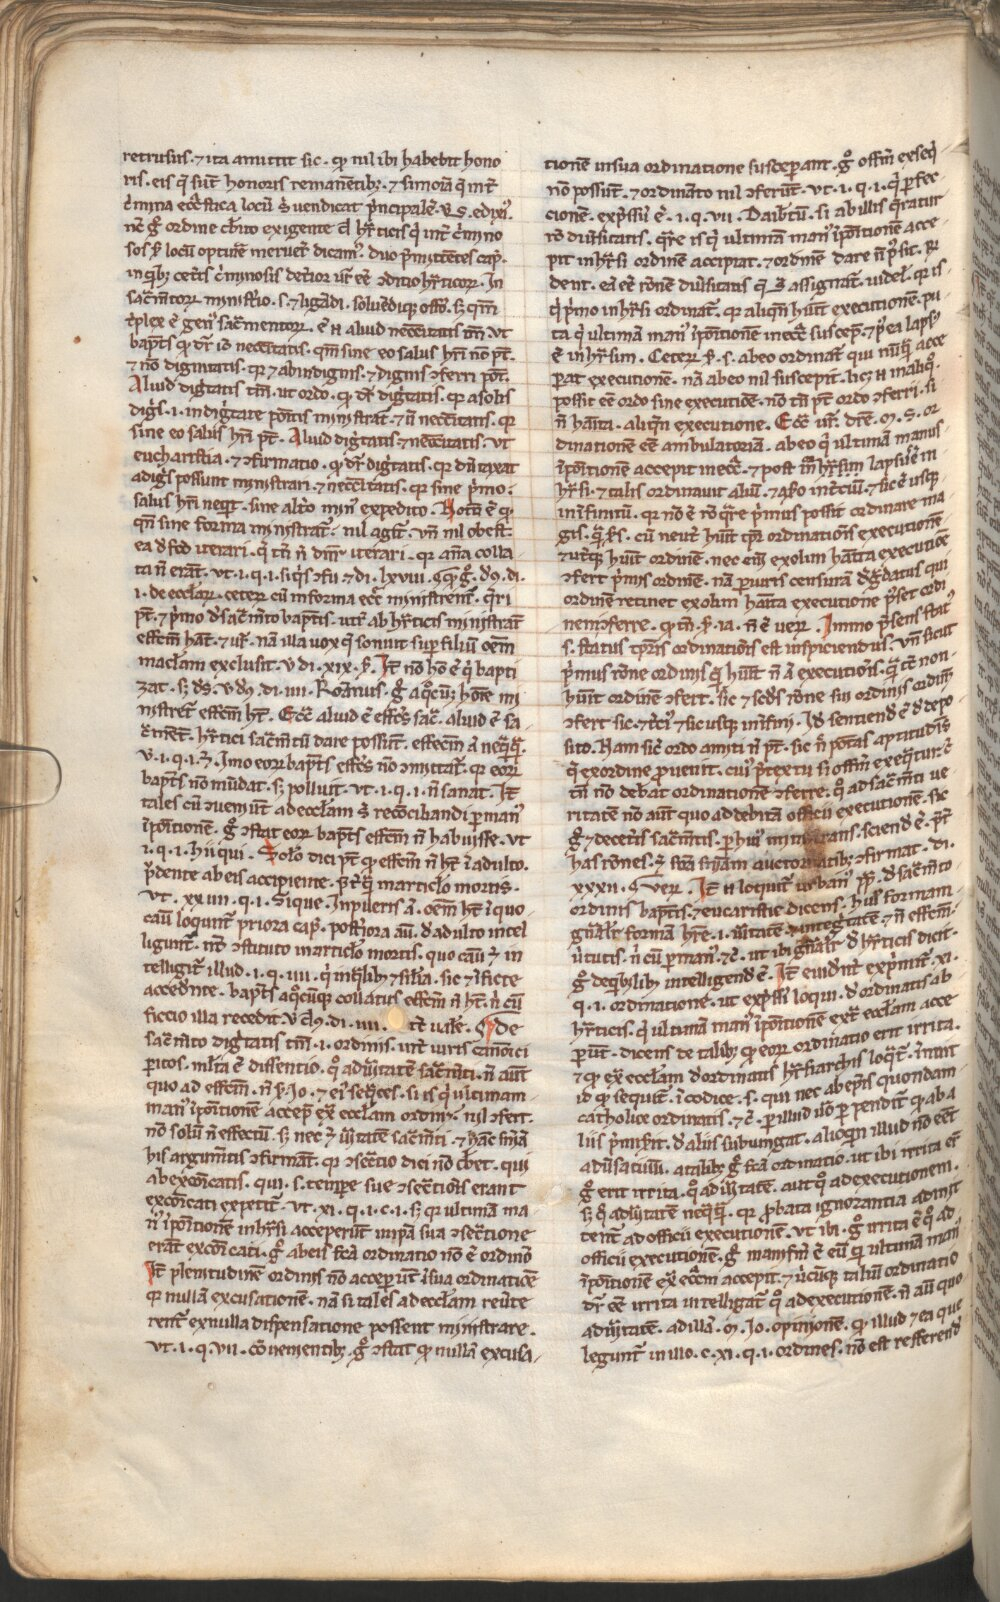 retrusus. ⁊ ita amittit sic. qͥ nil ibi habebit hono
ris. eis q̇ sūt honoris remanētibꝫ. ⁊ simonia q̇ int̄
c̓mina eccl̓astica locū s̓ vendicat p̓ncipalē. v. s. edixi᷒.
nc̄ gͦ ordine debito exigente d̓ hr̄ticis q̇ int̄ c̓mino
sos p̓ locū optinē meruer̄t dicam᷒. duo p̓mittētes cap̓.
in qͥbꝫ cet̓is c̓minosis det̓ior ur̄ eē ↄditio hr̄ticorꝝ. In
sac̄mētorꝝ minist̓io. s. ⁊ ligādi. soluēdiqꝫ offō. sꝫ qm̄
t̓plex ē gen᷒ sac̄mentorꝝ. ē .n. aliud nec̄citatis tm̄. ut
bapt̄s qͥ dr̄ iō nec̄citatis. qm̄ sine eo salus hr̄i nō pt̄.
⁊ nō dignitatis. qꝛ ⁊ ab indignis. ⁊ dignis ↄferri pōt.
Aliud dig̓tatis tm̄. ut ordo. qͥ dr̄ dig̓tatis. qꝛ a solis
dig̓s. i. in dig̓tate po᷒itis ministrat̄. ⁊ n̄ nec̄citatis. qꝛ
sine eo salus hr̄i pt̄. Aliud dig̓tatis ⁊ nec̄citatis. ut
eucharistia. ⁊ ↄfirmatio. qͥ dr̄ dig̓tatis. qꝛ dū taxat
a dig̓s possunt ministrari. ⁊ nec̄citatis. qꝛ sine p̓mo.
salus hr̄i neqͥt. sine alt̓o min᷒ expedito. Notā ē qͥ
qn̄ sine forma ministrat̄. nil agit̄. un̄ nil obest.
ea d̓ s̄cd iterari. q̇ tn̄ n̄ dn̄r iterari. qꝛ an̄a colla
ta n̄ erāt. ut. i. q. i. siq̇s ↄfu ⁊ di. lxviii.
i. de eccl̓arꝝ. ceterꝝ cū in forma eccē ministrent̄. q̄ri
pt̄. ⁊ p̓mo d̓ sac̄mto baptīs. utꝝ ab hr̄ticis ministrat̄
effcm̄ hāt. ⁊ ur̄. nam illa uox q̇ sonuit sup̄ filiū oēm
maclam exclusit. v̓ di. xix. p̓. It̄ nō hō ē q̇ bapti
zat. sꝫ d᷒s. v̓ d᷒. di. iiii. Romanus. gͦ a qͦcūqꝫ hoīe mi
nistret̄ effcm̄ ht̄. Ecc̄ aliud ē effc̄s sac̄. aliud ē sa
c̓ment̄. hr̄tici sac̄mtū dare possunt. effectm̄ .ā. neqͣqͣ.
v. i. q. i. ⁊. Imo eorꝝ bapt̄s effc̄s nō ↄmittat̄. qꝛ eorꝝ
bapt̄s nō mūdat. sꝫ polluit. ut. i. q. i. n̄ sanat. It̄
tales cū ↄueniūt ad eccl̓am s̓ recōciliandi per man᷒
īpo᷒itionē. gͦ ↄstat eorꝝ bapt̄s effcm̄ n̄ habuisse. ut
i. q. i. hii qui. Solo dici pt̄ qͥ effcm̄ n̄ ht̄ ī adulto.
p̓dente ab eis accipiente. p̄t̄qͣ in articlo mortis.
ut. xxiiii. q. i. Si que. In pueris .ā. oēm ht̄ ī quo
cāu᷒ loqunt̄ priora cap̓. post̓iora aū. d̓ adulto intel
ligunt̄. nō ↄstituto in articlo mortis. quo cāu᷒ ī in
telligit̄ illud. i. q. iiii. q̇ inqͥlibꝫ ⁊ filia. sic ⁊ ficte
accedente. bapt̄s aqͦcūqꝫ collatus effcm̄ n̄ ht̄. n̄ cū
fictio illa recedit. v̓ d᷒. di. iiii. tc̄ uale. De
sac̄mto dig̓tatis tm̄. i. ordinis. int̄ uiris canōici
peritos. ml̓ta ē dissentio. qͦ ad u̓itatē sac̄mti. n̄ aut̄
quo ad effcm̄. n̄ p̓ Jo. ⁊ ei᷒ seqͣces. si is q̇ ultimam
man᷒ īpo᷒itionē accep̄ ext̄ eccl̓am ordin᷒. nil ↄfert.
nō solū n̄ effectū. sꝫ nec ⁊ u̓itatē sac̄mti. ⁊ hāc sn̄iā
his argum̄tis ↄfirmāt. qꝛ ↄsec̄tio dici nō debet. qui
ab excōicatis. qui. s. tempe sue ↄsec̄tiōis erant
excōicati expetit̄. ut. xi. q. i. c. i. sꝫ qꝛ ultimā ma
n᷒ īpo᷒itionē in hr̄si acceperūt in ipā sua ↄsec̄tione
erāt excōicati. gͦ ab eis fc̄a ordinatio nō ē ordinō
It̄ plenitudinē ordinis nō acceperūt ī sua ordinatiōe
qꝛ nullā excusationē. nā si tales ad eccl̓am reu̓te
rent̄ ex nulla dispensatione possent ministrare.
ut. i. q. vii. cōuenientibꝫ. gͦ ↄstat qͥ nullā excusa
tionē in sua ordinatione susceperant. gͦ offm̄ exseq̇
nō possūt. ⁊ ordināto nil ↄferūt. ut. i. q. i. q̇ perfec
cionē. expss̄ū ē. i. q. vii. Daib̄tū. si ab illis q̄ratur
rō diu̓sitatis. q̄re is q̇ ultimā man᷒ īpo᷒itionē acce
pit in hr̄si ordinē accipiat. ⁊ ordinē dare n̄ p̓sit. R̄
dent. eā eē rōnē diu̓sitatis q̄ ī assignat̄. uidel̓. qꝛ is
q̇ p̓mo in hr̄si ordinat̄. qꝛ aliqn̄ hūit executionē. pu
ta q̇ ultimā man᷒ īpo᷒itionē in eccē suscep̄. ⁊ p̓ea laps᷒
ē in hr̄sim. Ceterꝝ p̓. s. ab eo ordinat̄ qui nūqͣ acce
perat executionē. nā ab eo nil suscepit. licꝫ .n. in aliqͦ.
possit eē ordo sine executiōe. nō tn̄ pt̄ ordo ↄferri. si
n̄ hāita. aliqn̄ executione. Ecc̄ ur̄. dn̄e. m. s. or
dinationē eē ambulatoriā. ab eo q̇ ultimā manus
īpo᷒itionē accepit in eccā. ⁊ post in hr̄sim lapsus ē in
hr̄si. ⁊ talis ordinauit aliū. ⁊ aliꝰ in t̓ciū. ⁊ sic ē usqꝫ
in īfinitū. qꝛ nō ē rō q̄re p̓mus possit ordinare ma
gis. qͣ s̄. cū neut̓ hūit tp̄r ordinationis executionē
⁊ ut̓qꝫ hūit ordinē. nec eni exolim hāita executiōe
ↄfert p̓mus ordinē. nā per iuris censurā degradatus qui
ordinē retinet exolim hāita executione p̓set ordi
nem ↄferre. qͥ tn̄. p̓. ia. n̄ ē ueꝝ. Immo p̓sens stat᷒
s. status tp̄ris ordinatiōis est inspiciendus. un̄ sicut
p̓mus rōne ordinis qͥ hūit n̄ .ā. executiōis. qͣ tc̄ non
hūit ordinē ↄfert. sic ⁊ scd̓s rōne sui ordinis ordinē
ↄfert sic. ⁊ tc̓i᷒ ⁊ sic usqꝫ in īfini. Id sentiendē ē d̓ depo
sito. Nam sic̄ ordo amitti n̄ pt̄. sic n̄ potās aptitudīs
q̇ ex ordine prouenit. cui᷒ p̄textu si offm̄ exeqͥtur. ē
tn̄ nō debeat ordinationē ↄferre. qͦ ad sac̄mti ue
ritatē nō aūt quo ad debitā officii executionē. sic
gͦ ⁊ decet̓is sac̄mtis. per hui᷒ sciend ē. p̄t̄
has rōnes. auctoritatibꝫ ↄfirmat. di.
xxxii. § ueꝝ. It̄ .n. loquit̄ urban᷒ p̄p̄. d̓ sac̄mto
ordinis baptis. ⁊ eucaristie dicens. hui᷒ formam
gn̄alr̄ formā hr̄e. i. u̓itatē. ⁊ integ̓tatē. ⁊ n̄ effcm̄.
u̓tutis. n̄ cū per man᷒. ⁊c̄. ut ibi gn̄alr̄ d̓ hr̄ticis dicit.
gͦ de qͥbꝫlibꝫ intelligend ē. It̄ euidēt̄ exp̓mit̄. xi.
q. i. ordinatione. ut expss̄i᷒ loqui. d̓ ordinatis ab
hr̄ticis. q̇ ultimā man᷒ īpo᷒itionē ext̄ eccl̓am acce
perūt. dicens de talibꝫ qͥ eorꝝ ordinatio erit irrita.
⁊ qͥ ex eccl̓am d̓ ordinatis hr̄siarchis loqͥt̄. īnuit
id qͥ sequit̄. ī codice. s. qui nec ab ep̄is quondam
catholice ordinatis. ⁊c̄. per illud uō perpendit̄ qͥ ab a
liis p̓misit. d̓ aliis subiungat. alioqn̄ illud nō eēt
adu̓satiuū. a talibꝫ gͦ fc̄a ordinatio. ut ibi irrita ē
gͦ erit irrita. qͦ ad u̓itatē. aut qͦ ad executionem.
sꝫ q̇ ad u̓itatē neqͣqͣ. qꝛ probata ignorantia admit
tent̄ ad officii executionē. ut ibi. gͦ irrita ē qͦ ad
officii executionē. gͦ manifm̄ ē eū qͥ ultimā man᷒
īpo᷒itionē ex eccl̓am accepit. ⁊ utcūqꝫ taliū ordinatio
dr̄ eē irrita intelligat̄ qͦ ad executionē. n̄ aū quo
ad u̓itatē. ad illā. m. Jo. opinionē. qͥ illud ⁊ ea que
legunt̄ in illo. c. xi. q. i. ordines. nō est refferend̄